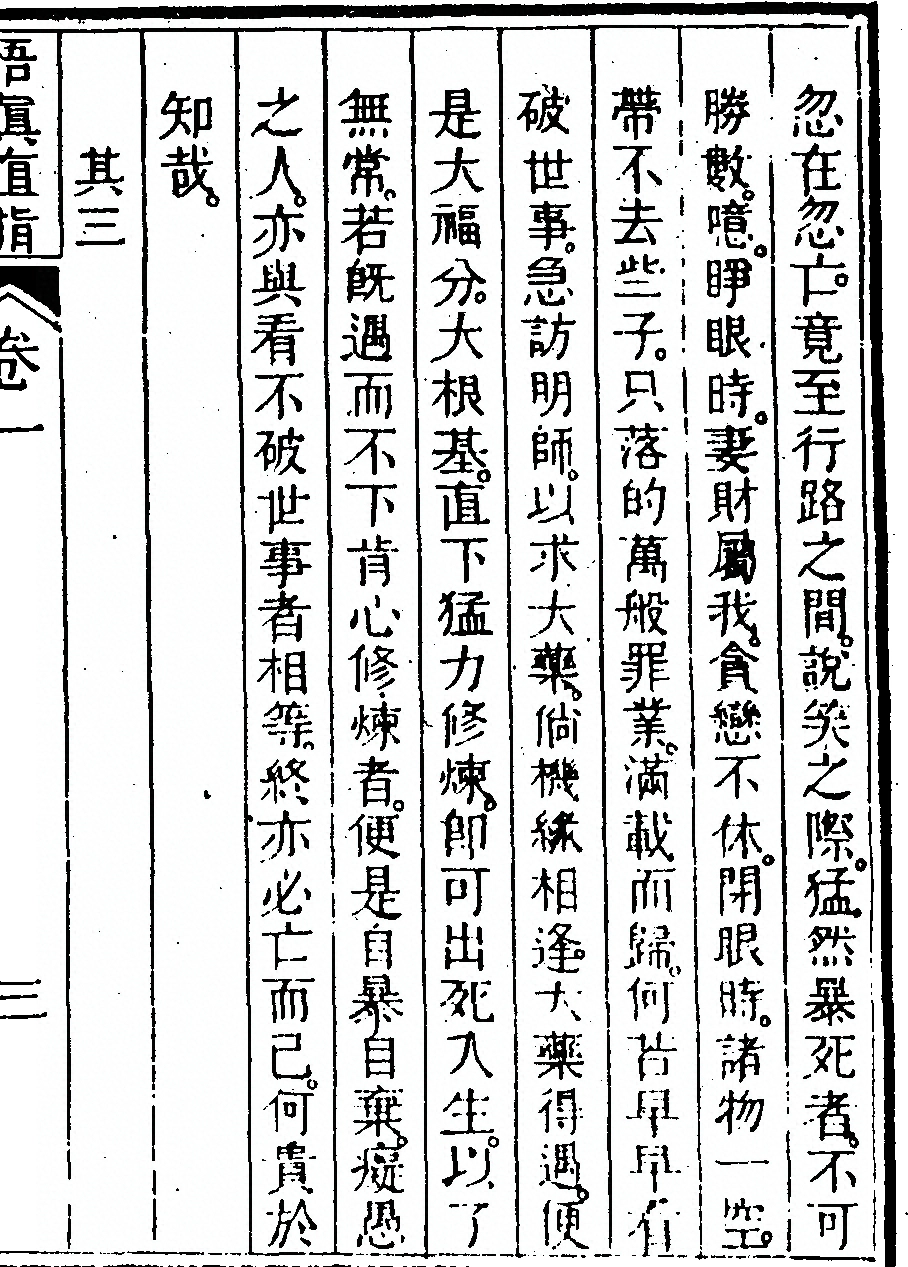 忽在忽亡。竟至行路之間。說笑之際。猛然暴死者。不可
勝數。噫。睜眼時。妻財屬我。貪戀不休。閉眼時。諸物一空。
帶不去些子。只落的萬般罪業。滿載而歸。何苦早早看
破世事。急訪明師。以求大藥。倘機緣相逢。大藥得遇。便
是大福分。大根基。直下猛力修煉。即可出死入生。以了
無常。若既遇而不下肯心修煉者。便是自暴自棄。癡愚
之人。亦與看不破世事者相等。終亦必亡而已。何貴於
知哉。
其三
悟真直指 卷一 三